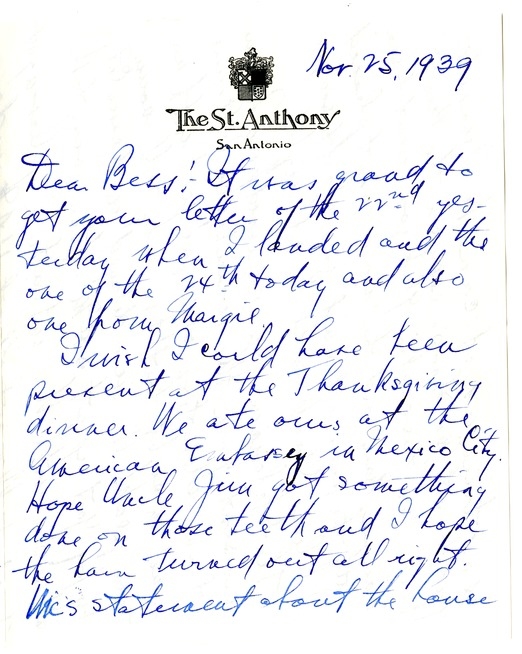 Nov. 25, 1939
The St. Anthony
San Antonio
Dear Bess: It was grand to
get your letter of the 22nd yes-
terday when I landed and the
one of the 24th today and also
one from Margie.
I wish I could have been
present at the Thanksgiving
dinner. We ate ours at the
American Embassy in Mexico City.
Hope Uncle Jim got something
done on those teeth and I hope
the ham turned out all right.
statement about the house